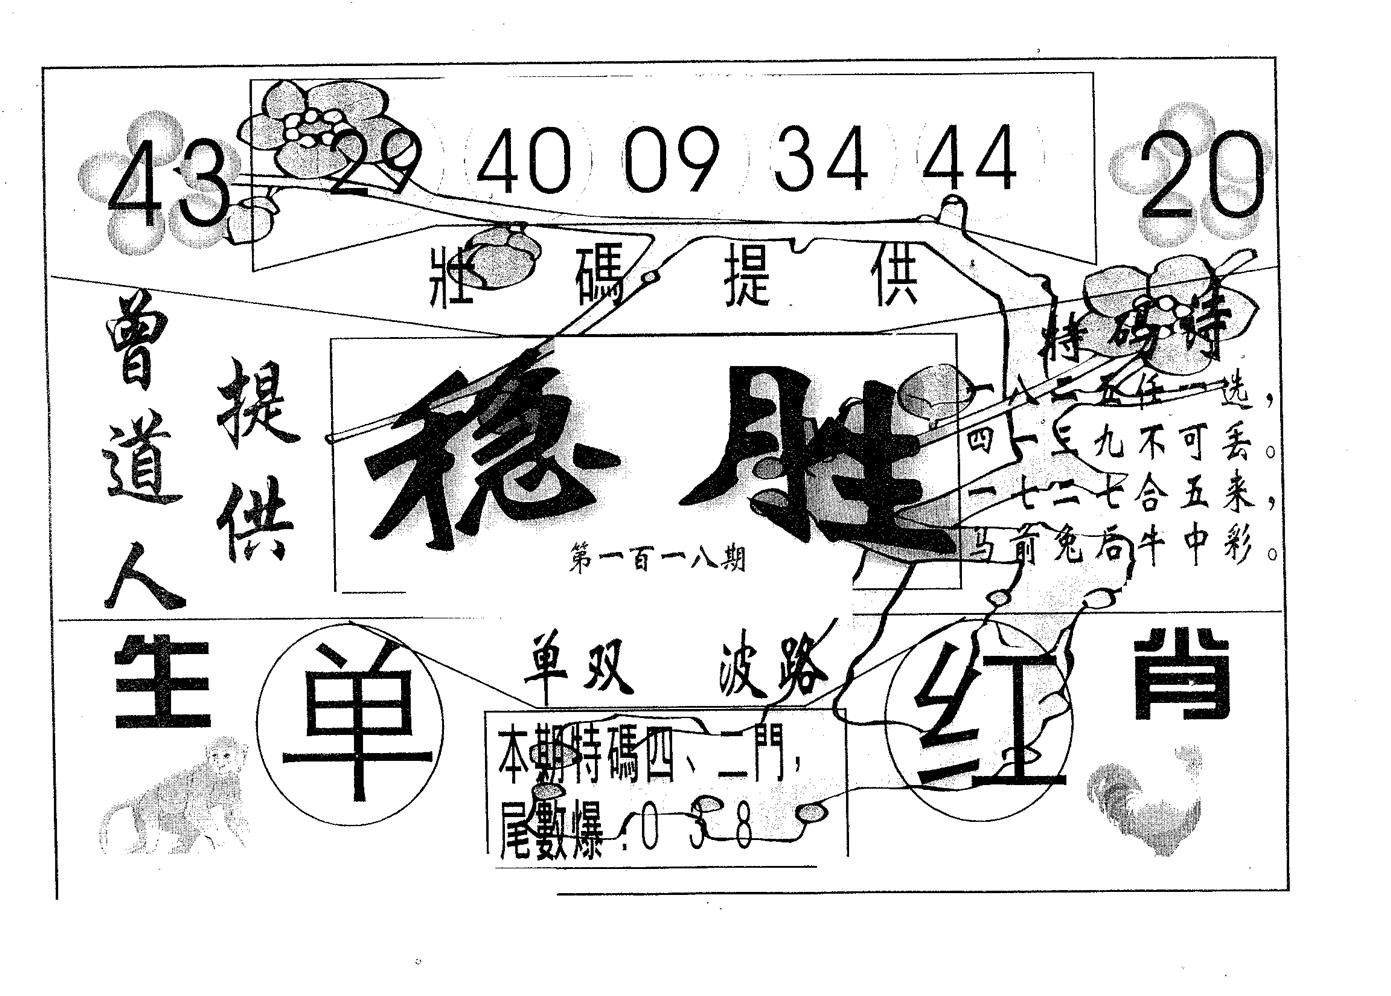 43 29 40 09 34 44 20
壯碼提供
曾道人
提供
稳胜
第一百一八期
特码诗
一八二五任一选，
四一三九不可丢。
一七二七合五来，
马前兔后牛中彩。
生肖
单
单双 波路
红
本期特碼四、二門，
尾數爆：0 3 8